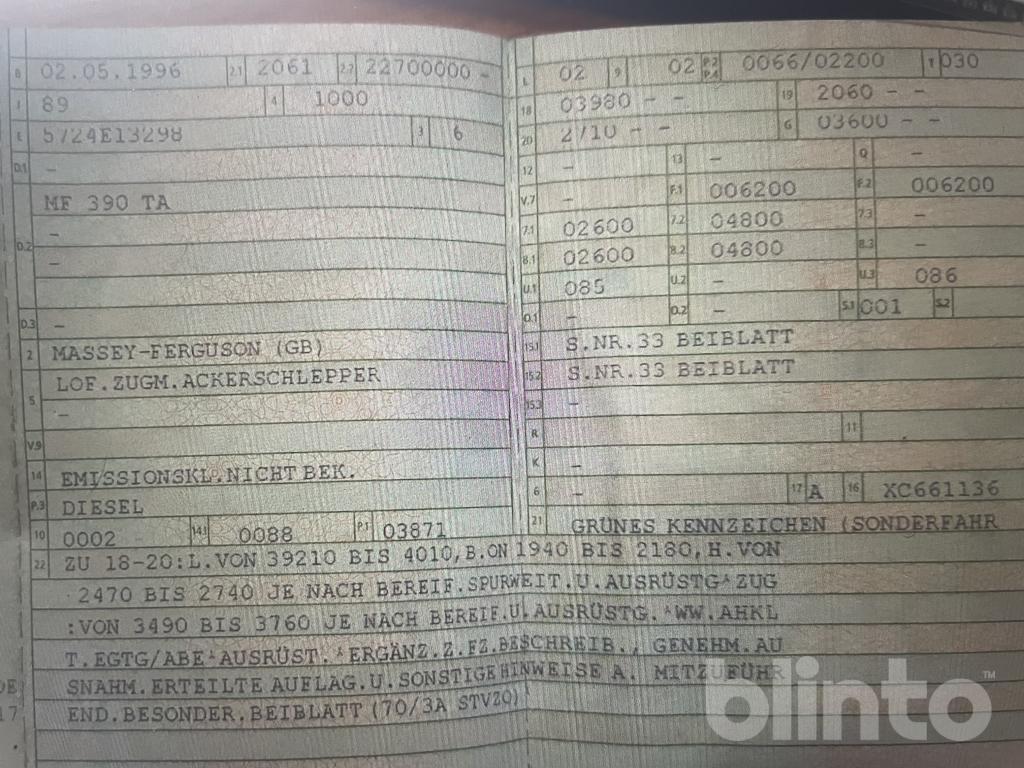 B 02.05.1996 2.1 2061 2.2 22700000 -
J 89 4 1000
E 5724E13298 3 6
D.1 -
D.2 MF 390 TA
-
-
D.3 -
2 MASSEY-FERGUSON (GB)
5 LOF.ZUGM.ACKERSCHLEPPER
-
V.9
14 EMISSIONSKL.NICHT BEK.
P.3 DIESEL
10 0002 14.1 0088 P.1 03871
L 02 9 02 P.2 P.4 0066/02200 T 030
18 03980 - - 19 2060 - -
20 2710 - - G 03600 - -
12 - 13 - Q -
V.7 - F.1 006200 F.2 006200
7.1 02600 7.2 04800 7.3 -
8.1 02600 8.2 04800 8.3 -
U.1 085 U.2 - U.3 086
O.1 - O.2 - S.1 001 S.2
15.1 S.NR.33 BEIBLATT
15.2 S.NR.33 BEIBLATT
15.3 -
R 11
K -
6 - 17 A 16 XC661136
21 GRÜNES KENNZEICHEN (SONDERFAHR
22 ZU 18-20:L.VON 39210 BIS 4010,B.ON 1940 BIS 2180,H.VON
2470 BIS 2740 JE NACH BEREIF.SPURWEIT.U.AUSRÜSTG*ZUG
:VON 3490 BIS 3760 JE NACH BEREIF.U.AUSRÜSTG.*WW.AHKL
T.EGTG/ABE*AUSRÜST.*ERGÄNZ.Z.FZ.BESCHREIB., GENEHM.AU
SNAHM.ERTEILTE AUFLAG.U.SONSTIGE HINWEISE A. MITZUFÜHR
END.BESONDER.BEIBLATT (70/3A STVZO)
blinto™